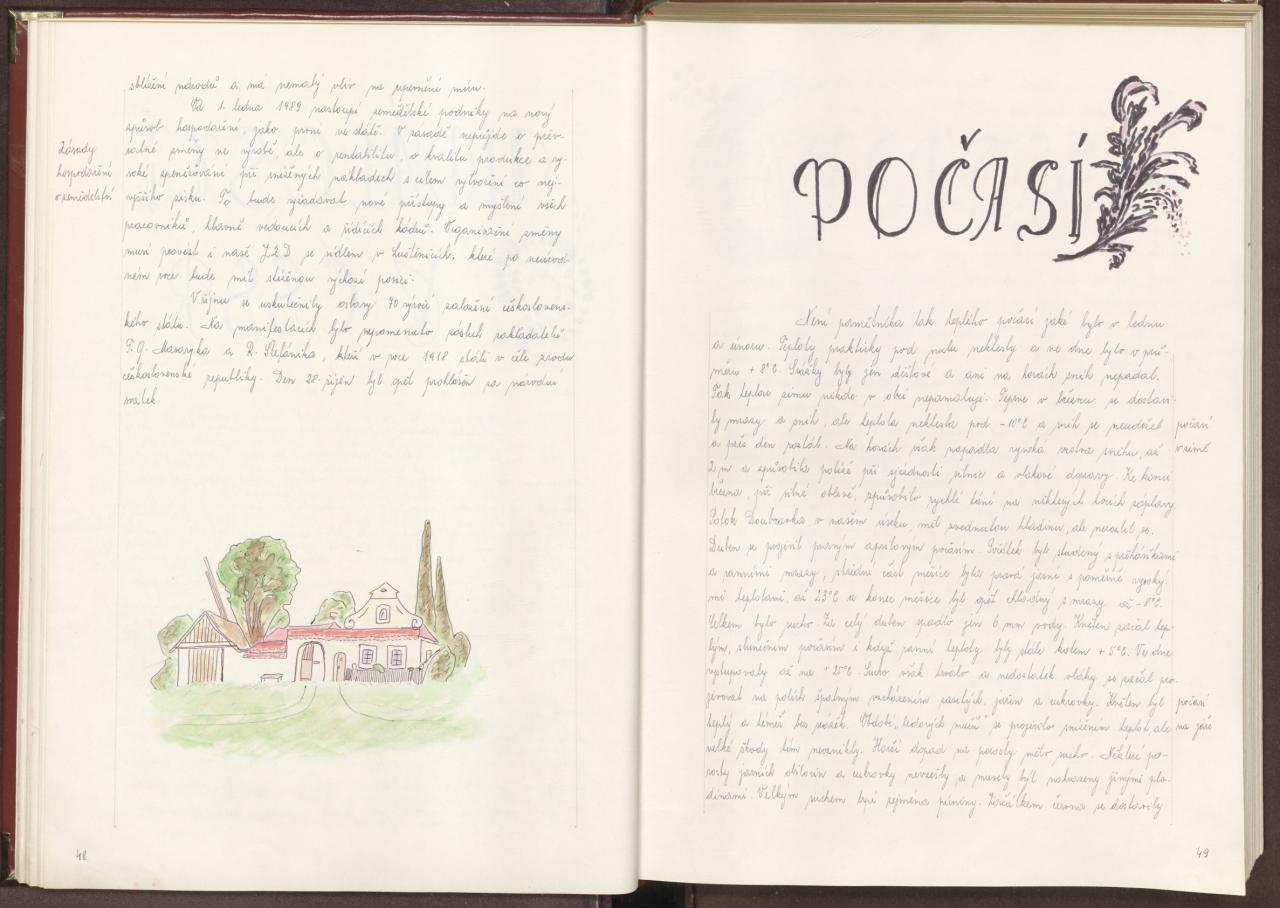 sblížení národů a má nemalý vliv na upevnění míru.
Od 1. ledna 1989 nastoupí zemědělské podniky na nový
způsob hospodaření, jako první ve státě. V zásadě nepůjde o převratné
Zásady
hospodaření
v zemědělství
změny ve výrobě, ale o rentabilitu, o kvalitu produkce a vysoké
zpeněžování při snížených nákladech s cílem vytvoření co nejvyššího
zisku. To bude vyžadovat nové přístupy a myšlení všech
pracovníků, hlavně vedoucích a řídících kádrů. Organizační změny
musí provést i naše JZD se sídlem v Luštěnicích, které po neúrodném
roce bude mít stíženou výchozí pozici.
V říjnu se uskutečnily oslavy 70 výročí založení československého
státu. Na manifestacích bylo vzpomenuto zásluh zakladatelů
T. G. Masaryka a R. Štefánika, kteří v roce 1918 stáli v čele zrodu
československé republiky. Den 28. říjen byl opět prohlášen za národní
svátek.
48
POČASÍ
Není pamětníka tak teplého počasí jaké bylo v lednu
a únoru. Teploty prakticky pod nulu neklesly a ve dne bylo v průměru
+ 8°C. Srážky byly jen dešťové a ani na horách sníh nepadal.
Tak teplou zimu nikdo v obci nepamatuje. Teprve v březnu se dostavily
mrazy a sníh, ale teplota neklesla pod -10°C a sníh se neudržel
počasí
v zimě
a přes den roztál. Na horách však napadla vysoká vrstva sněhu, až
2 m a způsobila potíže při sjízdnosti silnic a vlakové dopravy. Ke konci
března, při silné oblevě, způsobilo rychlé tání na některých tocích záplavy.
Potok Doubravka, v našem úseku, měl zvednutou hladinu, ale nerozlil se.
Duben se projevil pravým aprílovým počasím. Začátek byl studený s přeháňkami
a ranními mrazy, střední část měsíce byla pravá jarní s poměrně vysokými
teplotami, až 23°C a konec měsíce byl opět chladný s mrazy až -8°C.
Celkem bylo sucho. Za celý duben spadlo jen 6 mm vody. Květen začal teplým,
slunečním počasím i když ranní teploty byly stále kolem + 5°C. Ve dne
vystupovaly až na + 25°C. Sucho však trvalo a nedostatek vláhy se začal projevovat
na polích špatným vzcházením zasetých jařin a cukrovky. Květen byl
počasí
na jaře
teplý a téměř bez srážek. Období „ledových mužů“ se projevilo snížením teplot ale
velké škody tím nevznikly. Horší dopad na porosty mělo sucho. Některé porosty
jarních obilovin a cukrovky nevzešly a musely být nahrazeny jinými plodinami.
Velkým suchem trpí zejména pícniny. Začátkem června se dostavily
49